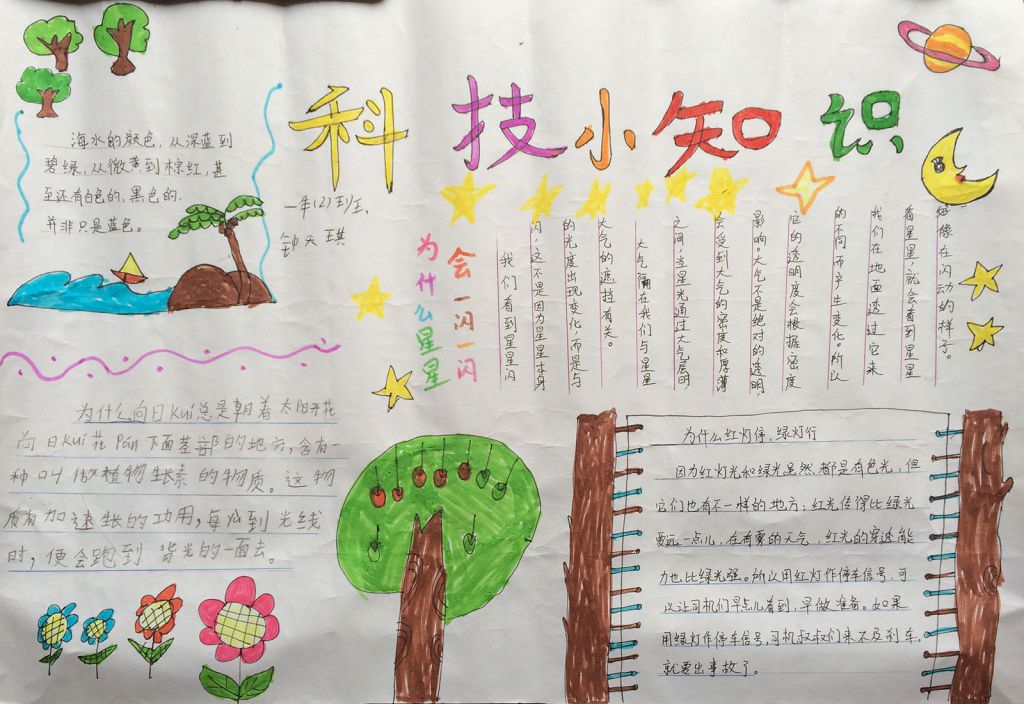 科技小知识
一年(2)班
钟天琪
海水的颜色,从深蓝到
碧绿,从微黄到棕红,甚
至还有白色的,黑色的,
并非只是蓝色。
为什么星星
会一闪一闪
我们看到星星闪
闪,这不是因为星星本身
的光度出现变化,而是与
大气的遮挡有关。
大气隔在我们与星星
之间,当星光通过大气层时
会受到大气的密度和厚薄
影响。大气不是绝对的透明,
它的透明度会根据密度
的不同而产生变化。所以
我们在地面透过它来
看星星,就会看到星星
好像在闪动的样子。
为什么向日kuí总是朝着太阳开花
向日kuí花pán下面茎部的地方,含有一
种叫做植物生长素的物质。这物
质有加速生长的功用,每次到光线
时,便会跑到背光的一面去。
为什么红灯停,绿灯行
因为红灯光和绿光虽然都是有色光,但
它们也有不一样的地方;红光传得比绿光
要远一点儿,在有雾的天气,红光的穿透能
力也比绿光强。所以用红灯作停车信号,可
以让司机们早点儿看到,早做准备。如果
用绿灯作停车信号,司机叔叔们来不及刹车,
就要出事故了。